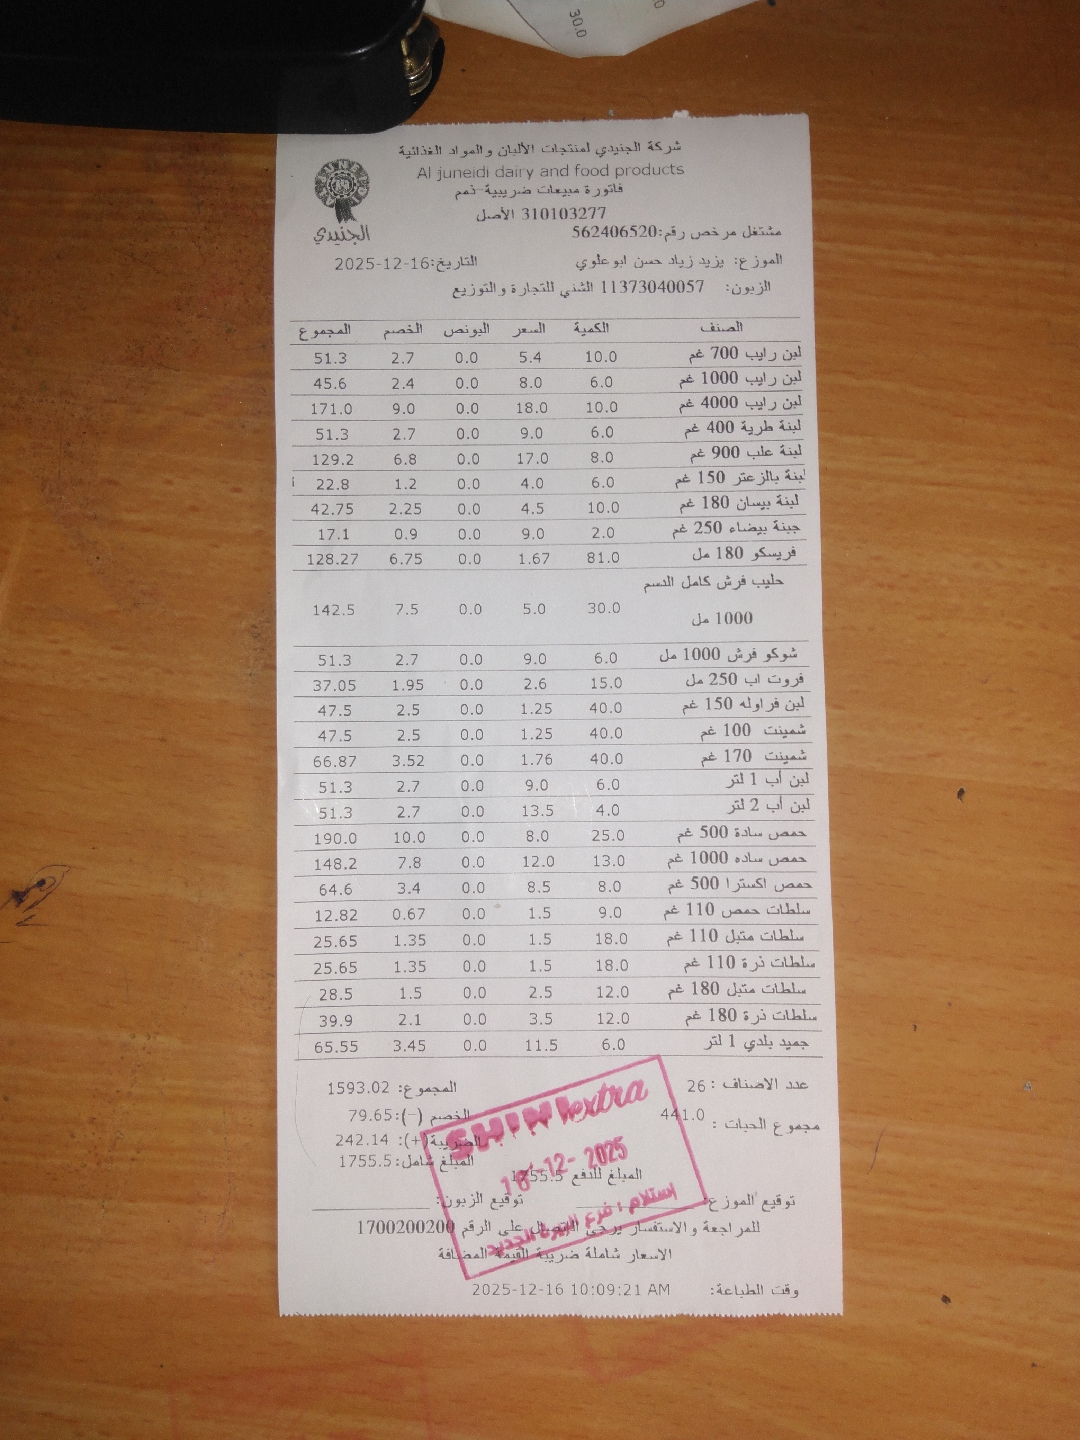 30.0
شركة الجنيدي لمنتجات الألبان والمواد الغذائية
Al juneidi dairy and food products
فاتورة مبيعات ضريبية-ذمم
310103277 الأصل
الجنيدي
مشتغل مرخص رقم:562406520
الموزع: يزيد زياد حسن ابوعلوي التاريخ:16-12-2025
الزبون: 11373040057 الشني للتجارة والتوزيع
الصنف الكمية السعر البونص الخصم المجموع
لبن رايب 700 غم 10.0 5.4 0.0 2.7 51.3
لبن رايب 1000 غم 6.0 8.0 0.0 2.4 45.6
لبن رايب 4000 غم 10.0 18.0 0.0 9.0 171.0
لبنة طرية 400 غم 6.0 9.0 0.0 2.7 51.3
لبنة علب 900 غم 8.0 17.0 0.0 6.8 129.2
لبنة بالزعتر 150 غم 6.0 4.0 0.0 1.2 22.8
لبنة بيسان 180 غم 10.0 4.5 0.0 2.25 42.75
جبنة بيضاء 250 غم 2.0 9.0 0.0 0.9 17.1
فريسكو 180 مل 81.0 1.67 0.0 6.75 128.27
حليب فرش كامل الدسم
1000 مل 30.0 5.0 0.0 7.5 142.5
شوكو فرش 1000 مل 6.0 9.0 0.0 2.7 51.3
فروت اب 250 مل 15.0 2.6 0.0 1.95 37.05
لبن فراوله 150 غم 40.0 1.25 0.0 2.5 47.5
شمينت 100 غم 40.0 1.25 0.0 2.5 47.5
شمينت 170 غم 40.0 1.76 0.0 3.52 66.87
لبن أب 1 لتر 6.0 9.0 0.0 2.7 51.3
لبن أب 2 لتر 4.0 13.5 0.0 2.7 51.3
حمص سادة 500 غم 25.0 8.0 0.0 10.0 190.0
حمص ساده 1000 غم 13.0 12.0 0.0 7.8 148.2
حمص اكسترا 500 غم 8.0 8.5 0.0 3.4 64.6
سلطات حمص 110 غم 9.0 1.5 0.0 0.67 12.82
سلطات متبل 110 غم 18.0 1.5 0.0 1.35 25.65
سلطات ذرة 110 غم 18.0 1.5 0.0 1.35 25.65
سلطات متبل 180 غم 12.0 2.5 0.0 1.5 28.5
سلطات ذرة 180 غم 12.0 3.5 0.0 2.1 39.9
جميد بلدي 1 لتر 6.0 11.5 0.0 3.45 65.55
عدد الاصناف : 26 المجموع: 1593.02
مجموع الحبات : 441.0 الخصم (-):79.65
الضريبة(+): 242.14
المبلغ شامل:1755.5
المبلغ للدفع 1755.5
SHINI extra
-12- 2025
استلام : فرع
توقيع الموزع: توقيع الزبون:
للمراجعة والاستفسار يرجى الاتصال على الرقم 1700200200
الاسعار شاملة ضريبة القيمة المضافة
وقت الطباعة: 2025-12-16 10:09:21 AM